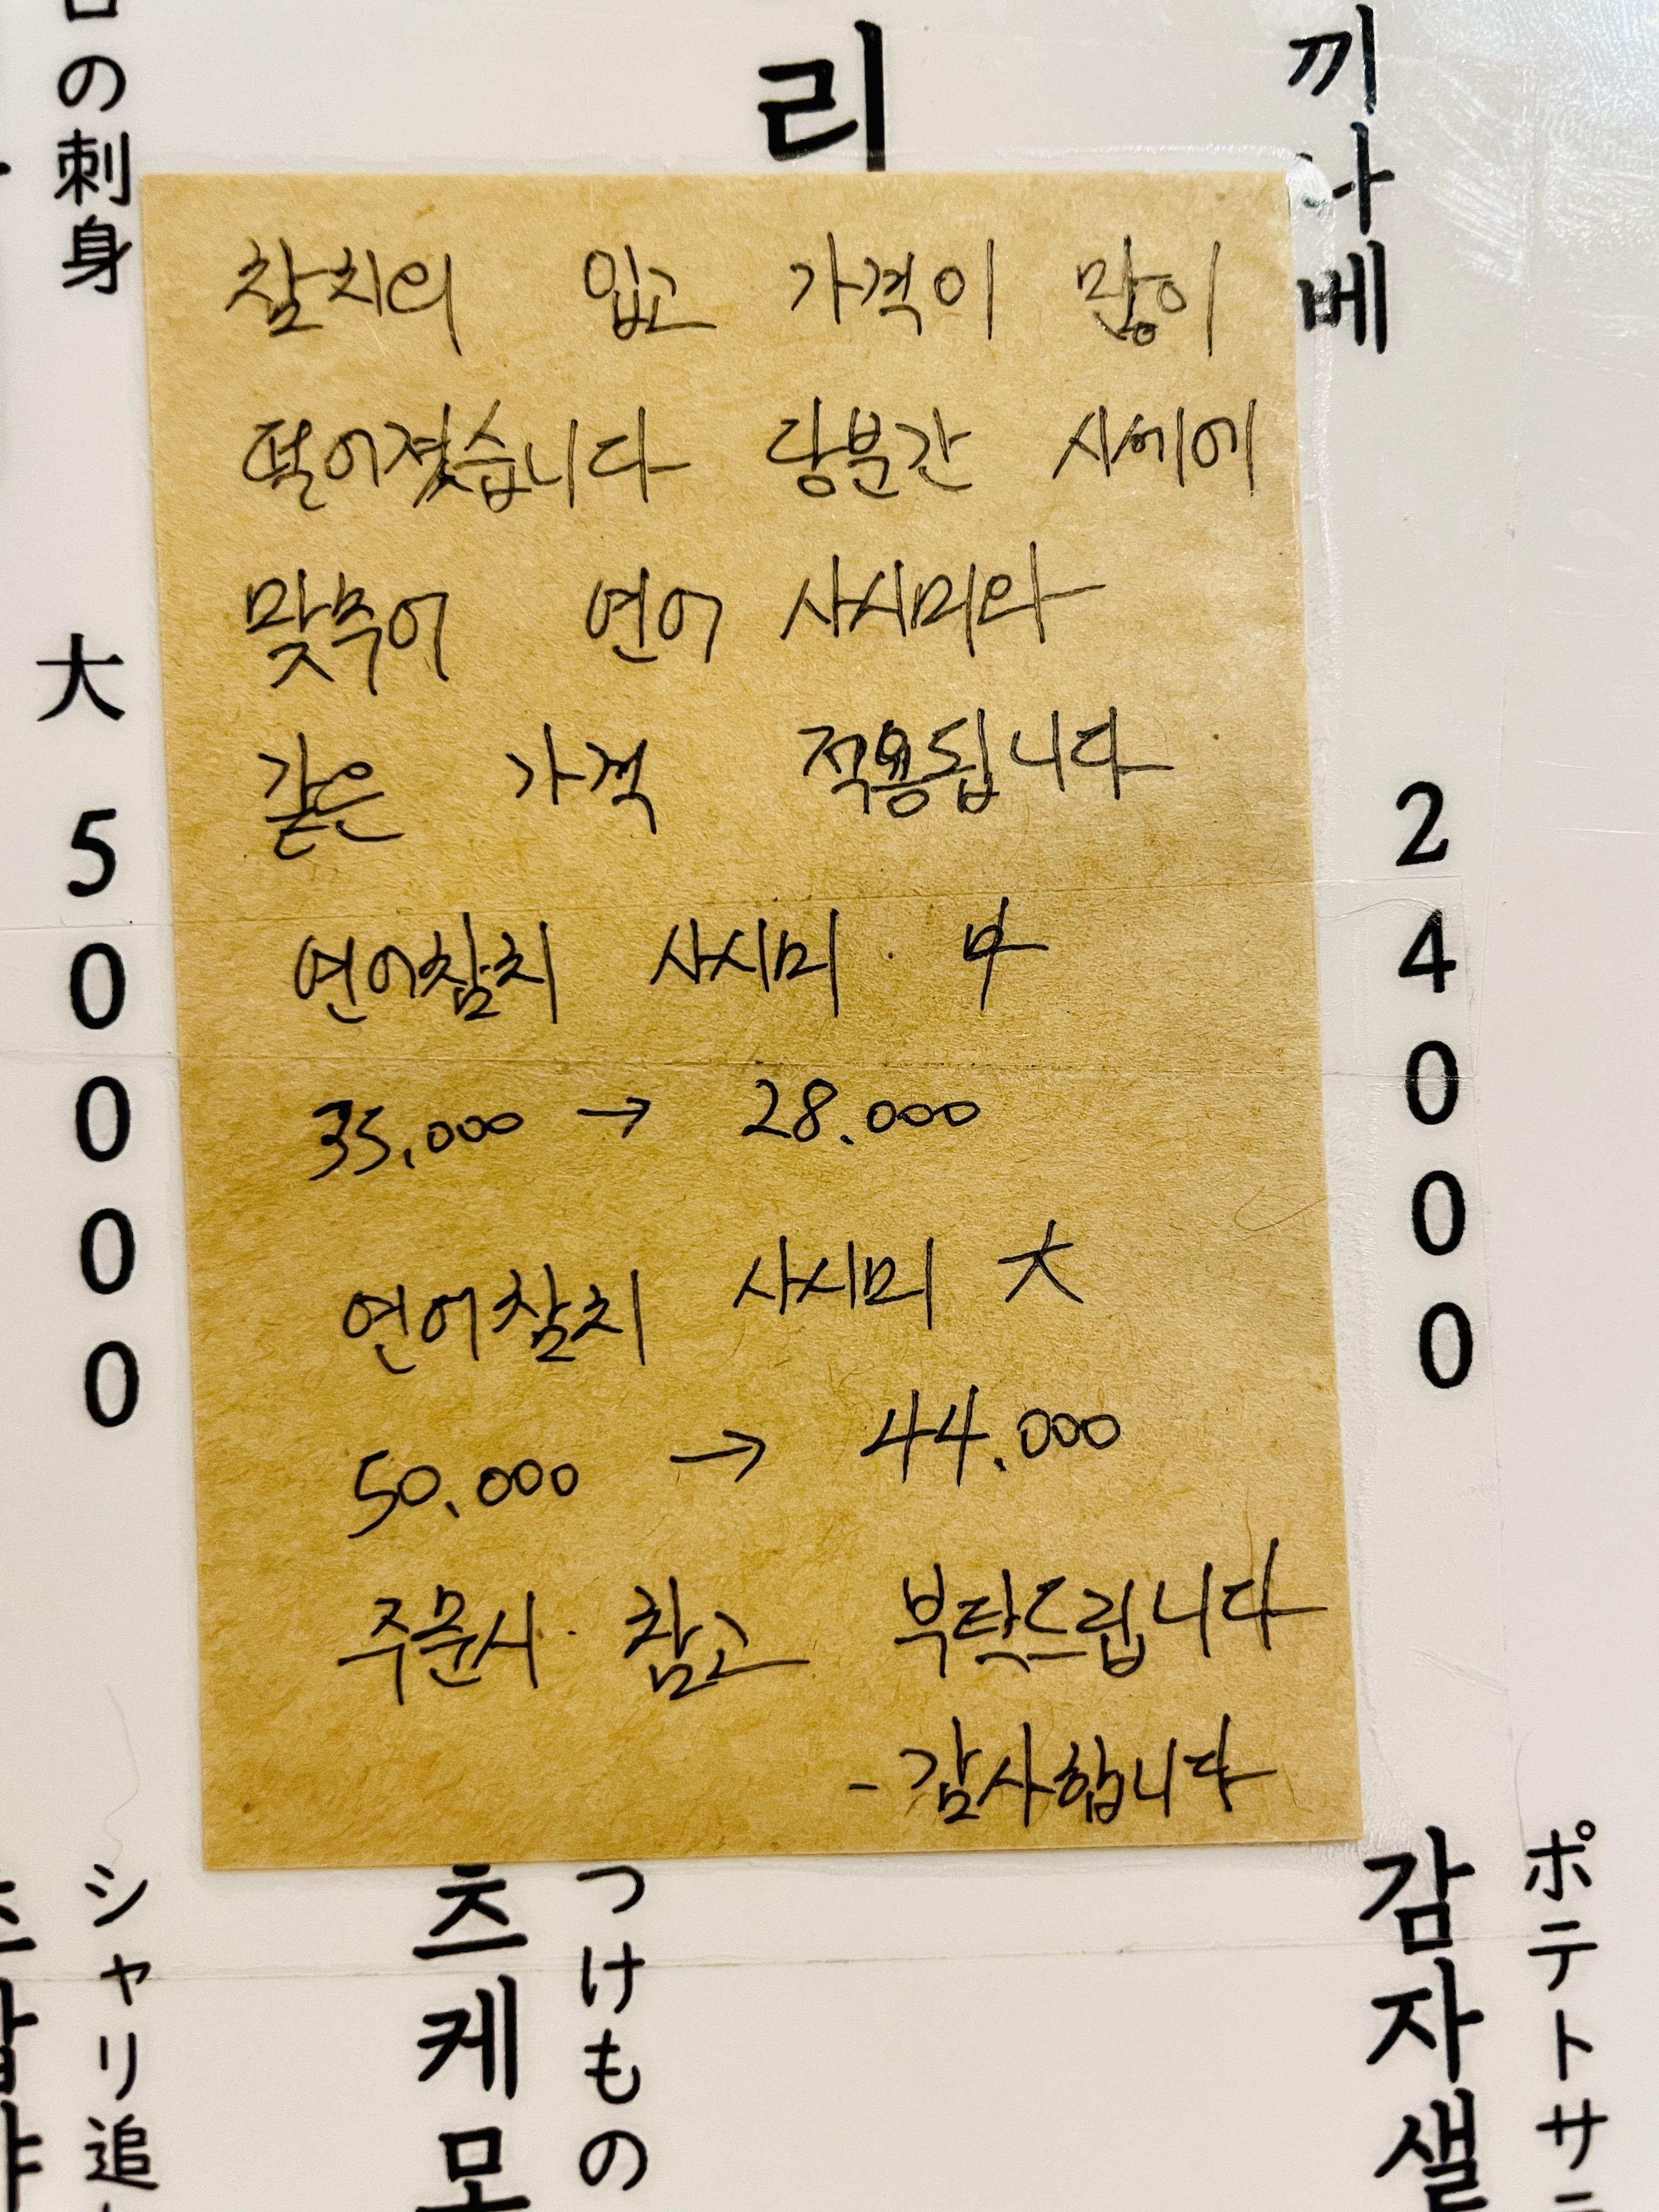 の刺身
大 50000
리
끼나베
24000
참치의 입고 가격이 많이
떨어졌습니다 당분간 시세에
맞추어 연어 사시미와
같은 가격 적용됩니다
연어참치 사시미 中
35,000 → 28.000
연어참치 사시미 大
50.000 → 44.000
주문시 참고 부탁드립니다
- 감사합니다
シャリ追
츠케모
つけもの
감자샐
ポテトサ